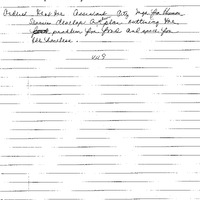 Ordered that the Assistant City Mgr for Human
Services develop a plan outlining the
problem for food and space for
the homeless.